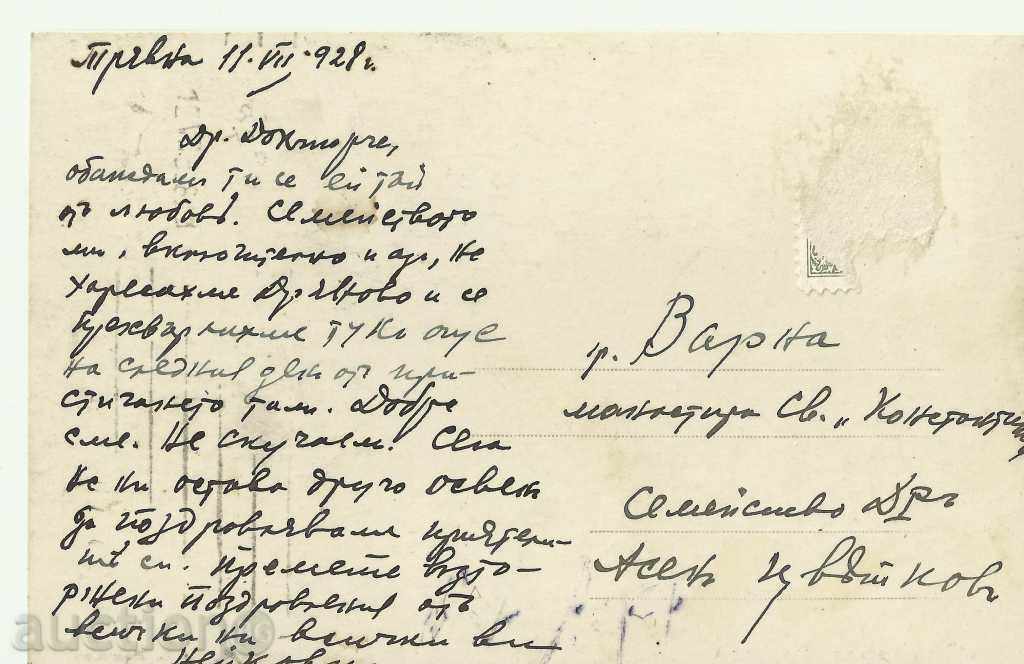 Трѣвна 11. VII. 928 г.
Др. Докторче,
обаждами ти се ей тъй
отъ любовь. Семейството
ми, включително и аз, не
харесахме Дрѣново и се
прехвърлихме тука още
на следния ден отъ при-
стигането там. Добре
сме. Не скучаем. Сега
не ни остава друго освен
да поздровляваме приятели-
тѣ си. Приемете
поздровления отъ
всички ни всички ви
гр. Варна
манастира Св. „ Константин
Семейство Д-ръ
Асен Цвѣтковъ